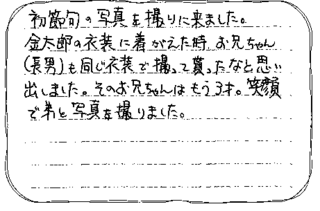 初節句の写真を撮りに来ました。
金太郎の衣装に着がえた時、お兄ちゃん
(長男)も同じ衣装で撮って貰ったなと思い
出しました。そのお兄ちゃんはもう3才。笑顔
で弟と写真を撮りました。